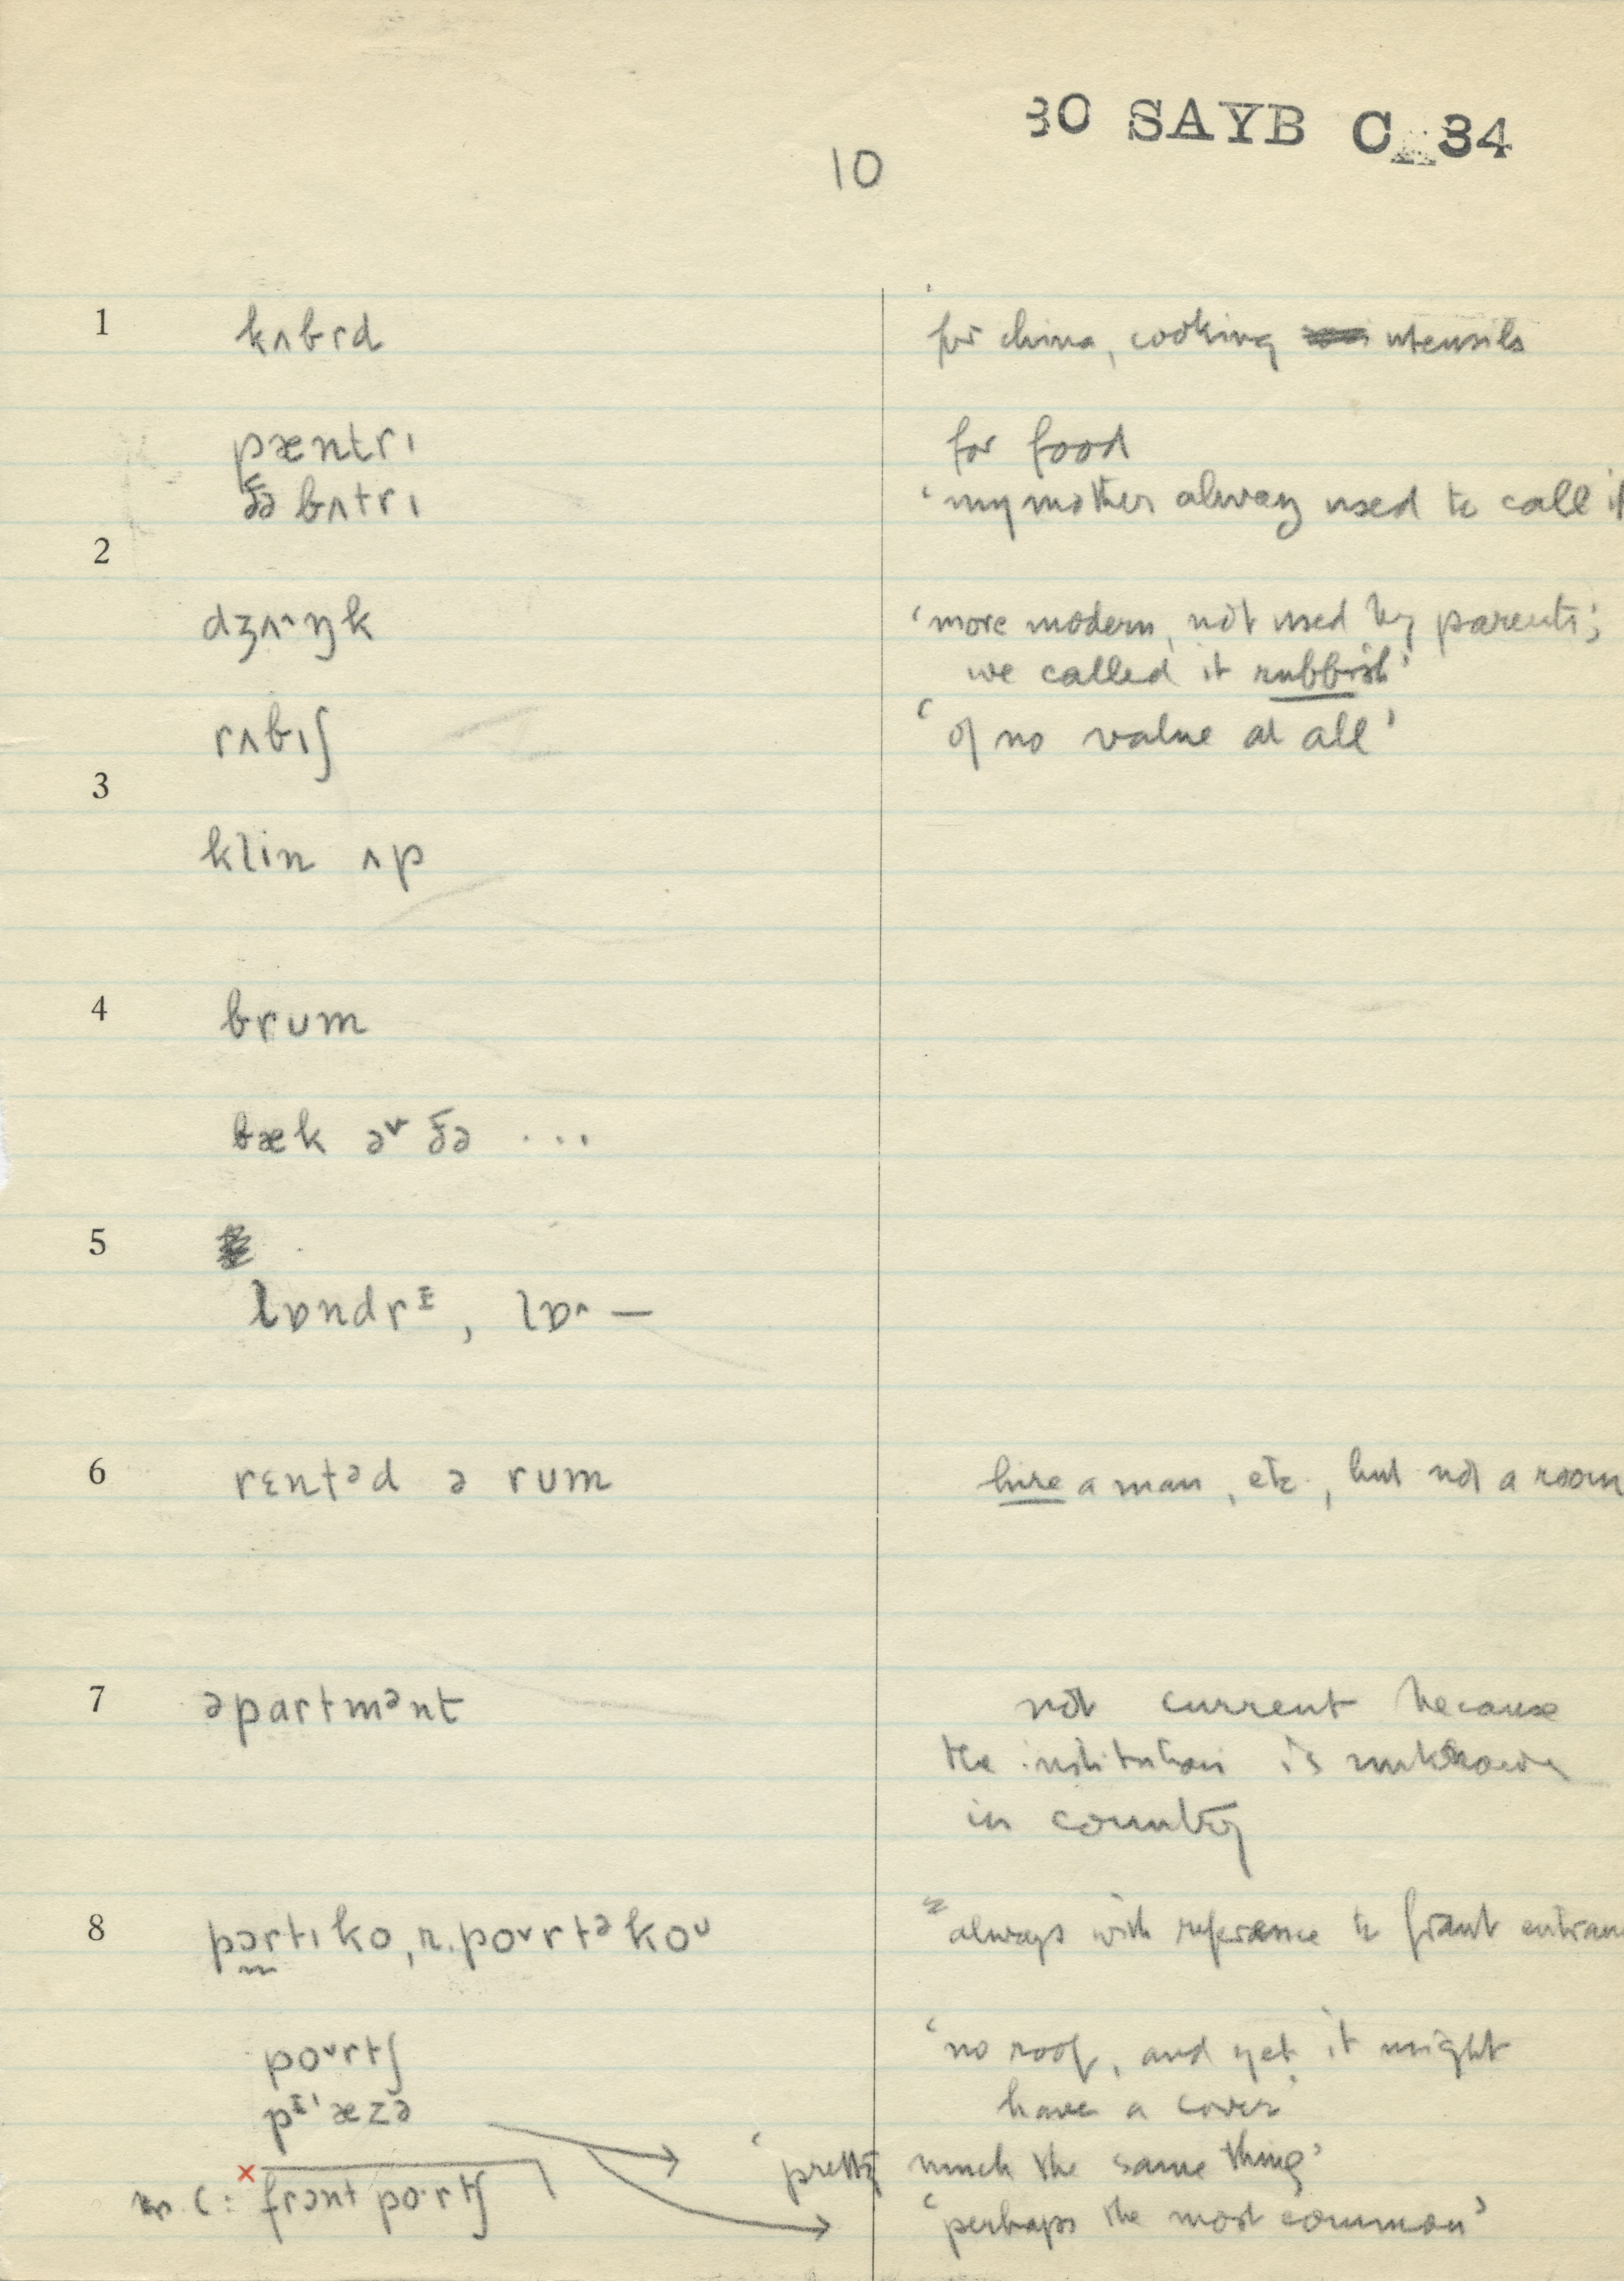 30 SAYB C 34
10
1 kʌbrd for china, cooking utensils
pæntrɪ for food
ðə bʌtrɪ ‘my mother alway used to call it
2
dʒʌ˄ŋk ‘more modern, not used by parents;
we called it rubbish’
rʌbɪʃ ‘of no value at all’
3
klin ʌp
4 brum
bæk əv ðə ...
5
lɒndrɪ, lɒ˄ —
6 rɛntəd ə rum hire a man, etc., but not a room
7 əpartmənt not current because
the institution is unknown
in country
8 pɔrtɪko, r. poʊrtəkoʊ always with reference to front entran
poʊrtʃ ‘no roof, and yet it might
have a cover’
pɪ'æzə
‘pretty much the same thing’
c: frɔnt portʃ ‘perhaps the most common’